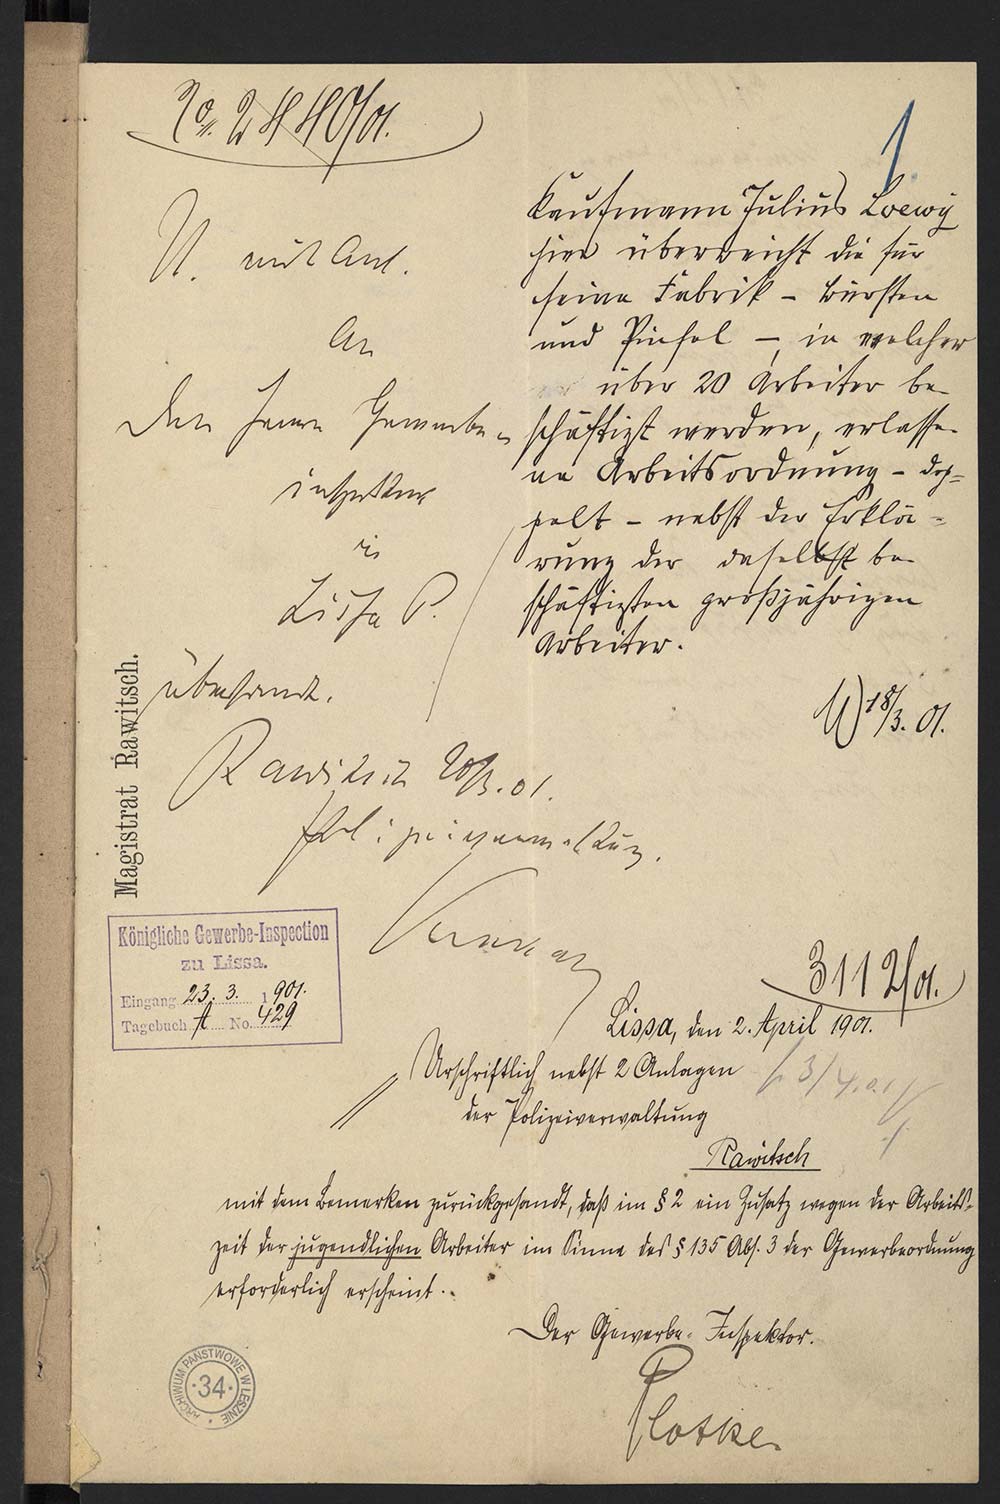 No. 2440/01.
1
Kaufmann Julius Loewy
hier überreicht die für
seine Fabrik – Bürsten
und Pinsel –, in welcher
über 20 Arbeiter be
schäftigt werden, erlasse-
ne Arbeitsordnung – dop=
pelt – nebst der Erklä=
rung der daselbst be
schäftigten großjährigen
Arbeiter.
18/3. 01.
U. mit Anl.
An
den Herrn Gewerbe-
inspektor
in
Lissa P.
übersandt.
Rawitsch 20/3. 01.
Polizeiverwaltung.
Magistrat Rawitsch.
Königliche Gewerbe-Inspection
zu Lissa.
Eingang 23. 3. 1901.
Tagebuch A No. 429
3112/01.
Lissa, den 2. April 1901.
Urschriftlich nebst 2 Anlagen
3/4.01
der Polizeiverwaltung
Rawitsch
mit dem Bemerken zurückgesandt, daß im § 2 ein Zusatz wegen der Arbeits-
zeit der jugendlichen Arbeiter im Sinne des § 135 Abs. 3 der Gewerbeordnung
erforderlich erscheint.
Der Gewerbe-Inspektor.
Plotke
ARCHIWUM PAŃSTWOWE W LESZNIE
34